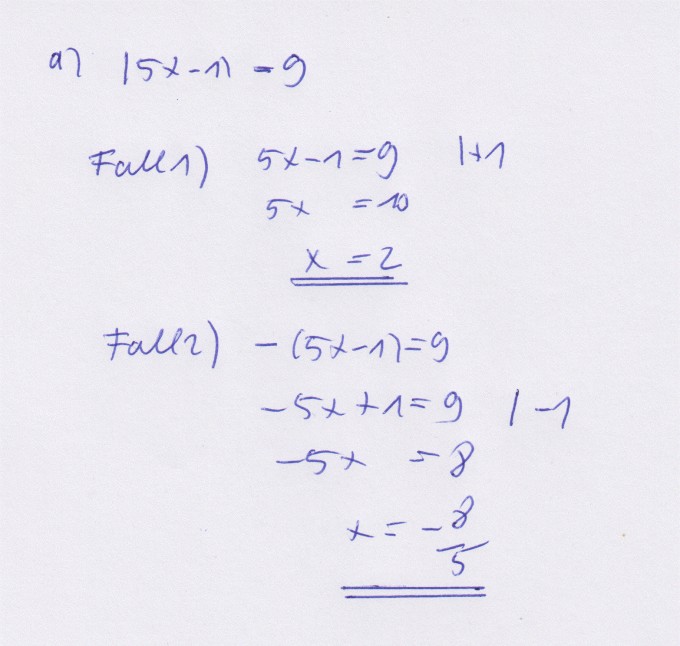 a) |5x-1| = 9
Fall 1) 5x-1=9 |+1
5x =10
x = 2
Fall 2) -(5x-1)=9
-5x+1=9 |-1
-5x =8
x = -8/5